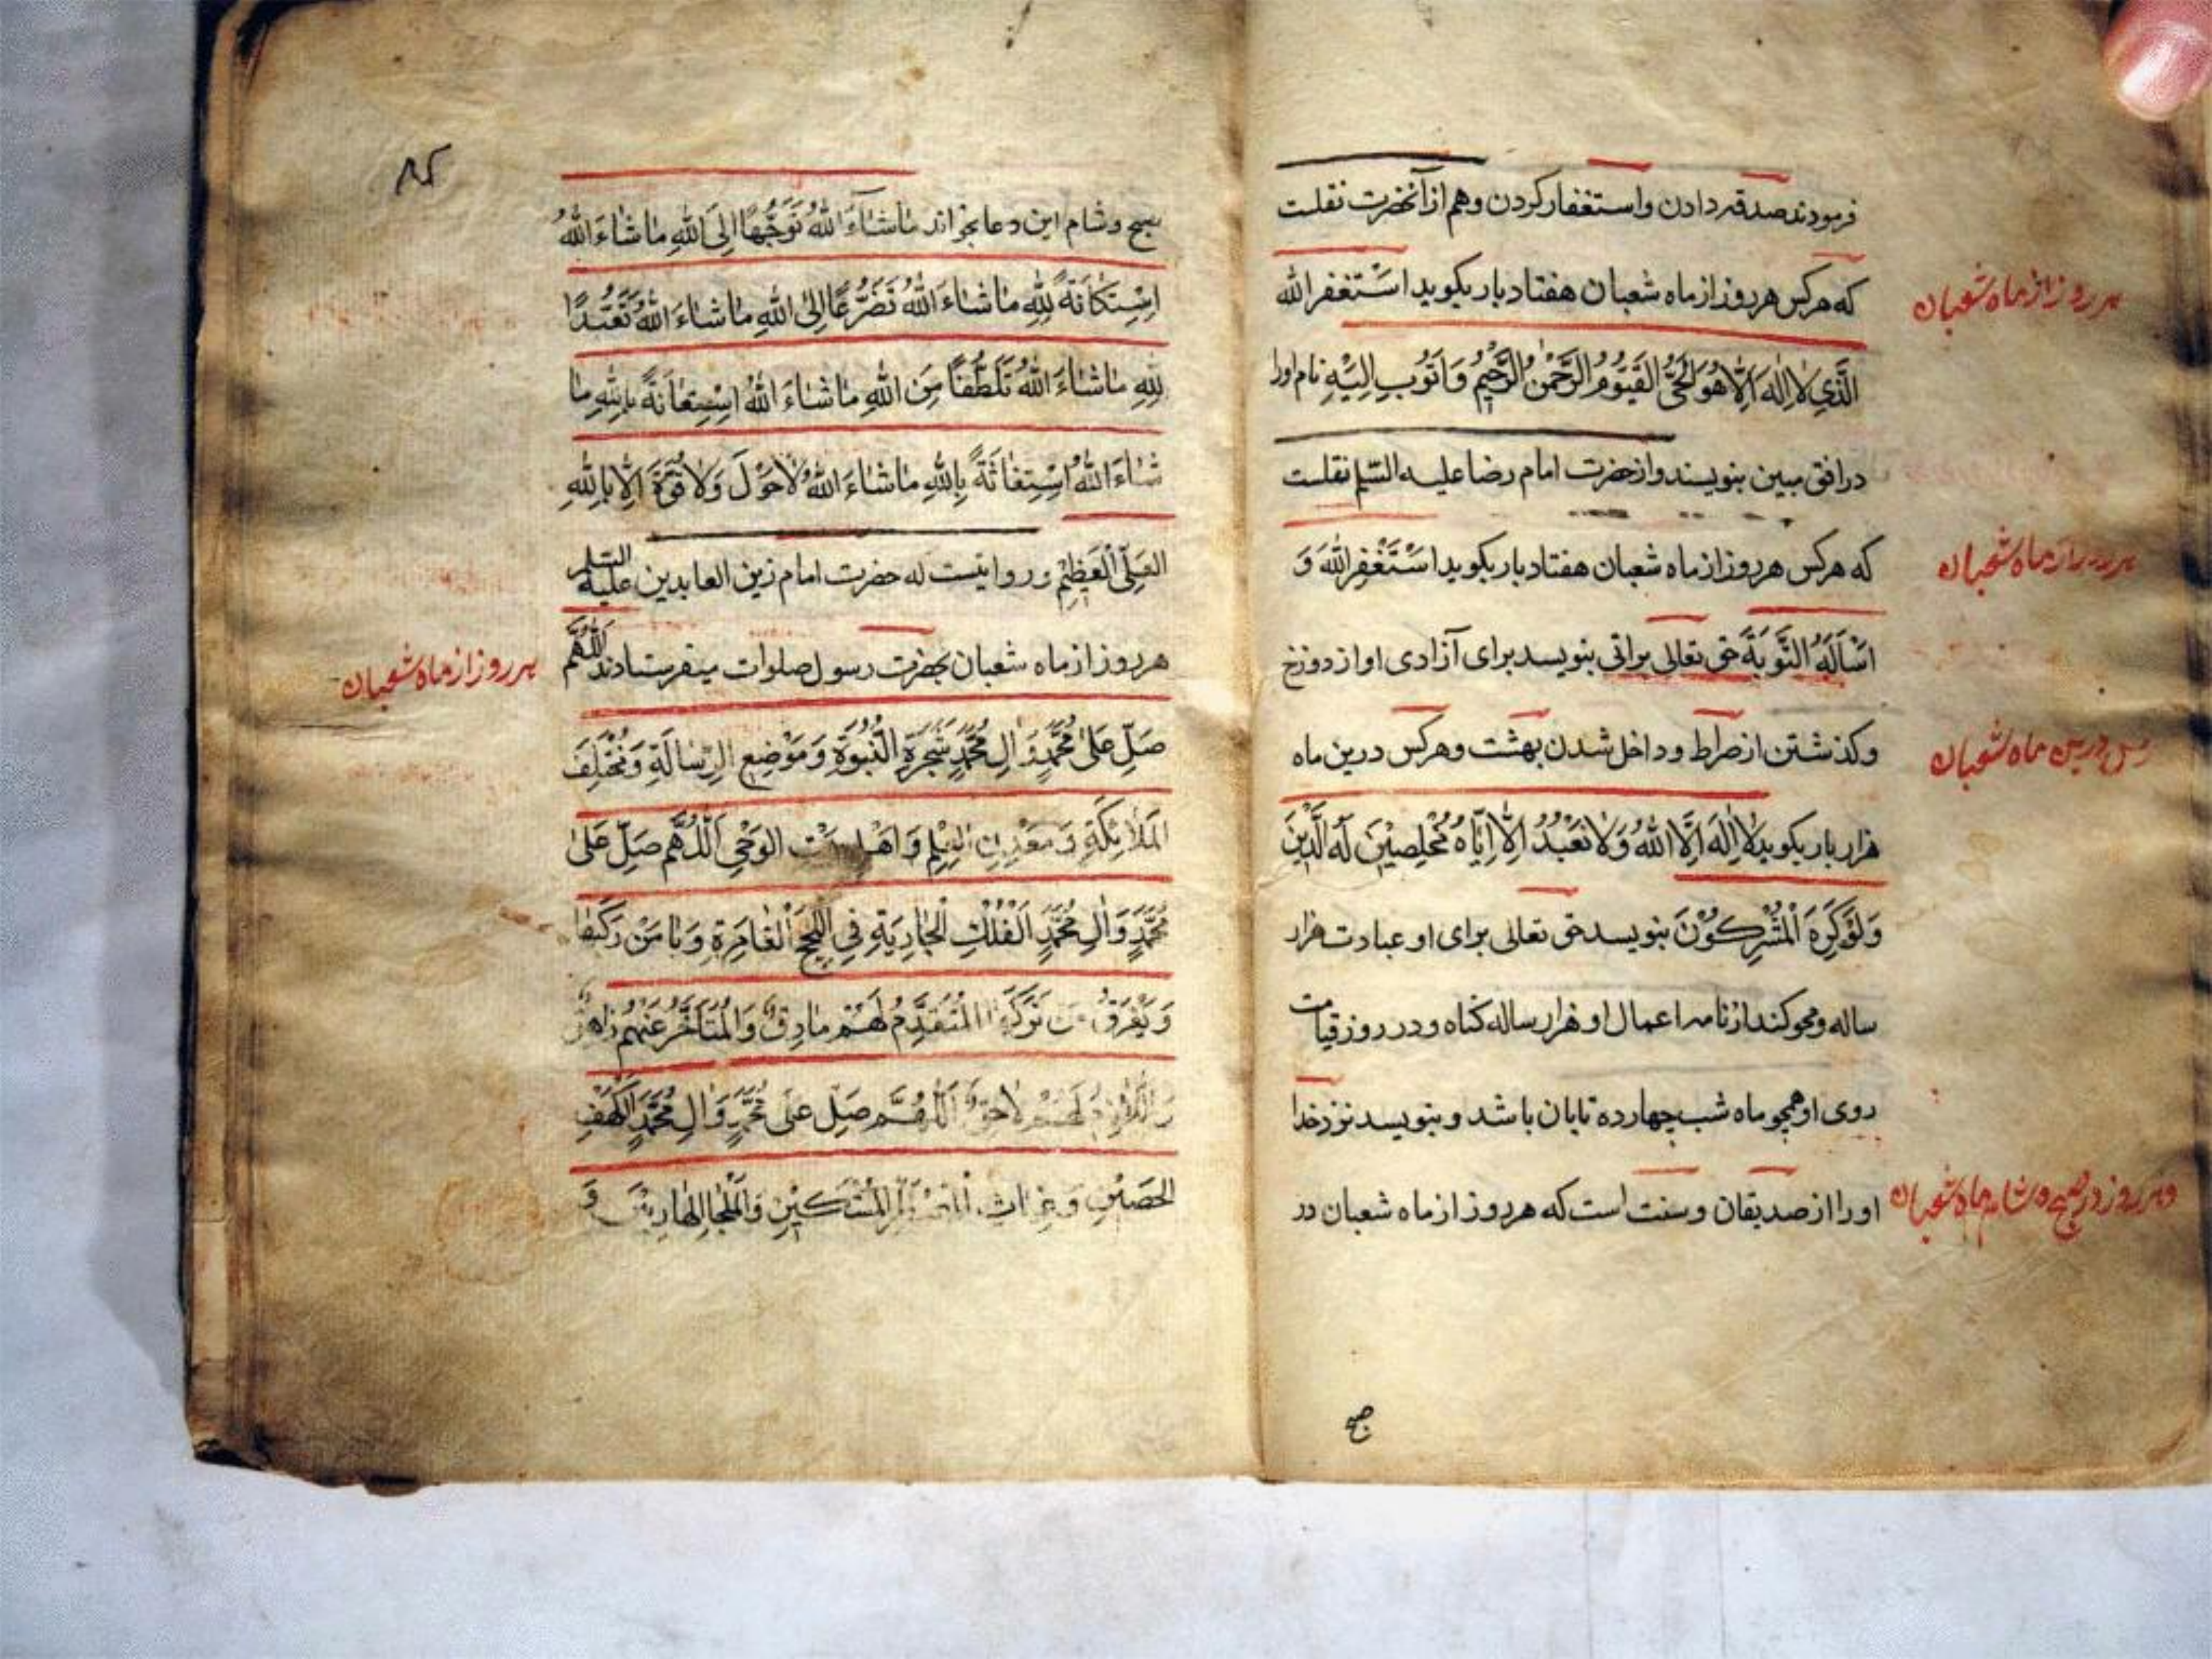 فرمودند صدقه دادن و استغفار کردن و هم از آنحضرت نقلست
که هرکس هر روز از ماه شعبان هفتاد بار بکوید استغفر الله
هر روز از ماه شعبان
الَّذِي لا اِلٰهَ اِلَّا هُوَ الحَیُّ القَیُّومُ الرَّحْمٰنُ الرَّحِیْمُ وَ اَتُوبُ اِلَیْهِ نام اورا
در افق مبین بنویسند و از حضرت امام رضا علیه السّلم نقلست
که هرکس هر روز از ماه شعبان هفتاد بار بکوید اَسْتَغْفِرُ اللهَ وَ
هر روز از ماه شعبان
اَسْاَلُهُ التَّوبَةَ حق تعالی براتی بنویسد برای آزادی او از دوزخ
و کذشتن از صراط و داخل شدن بهشت و هرکس درین ماه
درین ماه شعبان
هزار بار بکوید لا اِلٰهَ اِلَّا اللهُ وَلا نَعْبُدُ اِلَّا اِیَّاهُ مُخْلِصِیْنَ لَهُ الدِّینَ
وَلَوْ کَرِهَ الْمُشْرِکُوْنَ بنویسد حق تعالی برای او عبادت هزار
ساله و محو کند از نامه اعمال او هزار ساله کناه و در روز قیامت
روی او همچو ماه شب چهارده تابان باشد و بنویسد نزد خدا
اورا از صدیقان و سنت است که هر روز از ماه شعبان در
و هر روز در صبح و شام ماه شعبان
صبح
٨٤
صبح و شام این دعا بخواند مَا شَاءَ اللهُ تَوَجُّهًا اِلَی اللهِ مَا شَاءَ اللهُ
اِسْتِکَانَةً لِلّٰهِ مَا شَاءَ اللهُ تَضَرُّعًا اِلیَ اللهِ مَا شَاءَ اللهُ تَعَبُّدًا
لِلّٰهِ مَا شَاءَ اللهُ تَلَطُّفًا مِنَ اللهِ مَا شَاءَ اللهُ اِسْتِعَانَةً بِاللهِ مَا
شَاءَ اللهُ اِسْتِغَاثَةً بِاللهِ مَا شَاءَ اللهُ لَاحَوْلَ وَلَا قُوَّةَ اِلَّا بِاللهِ
العَلِّی الْعَظِیْمِ و روایتست که حضرت امام زین العابدین علیه السلم
هر روز از ماه شعبان بحضرت رسول صلوات میفرستادند اَللّٰهُمَّ
هر روز از ماه شعبان
صَلِّ عَلیٰ مُحَمَّدٍ وَ اٰلِ مُحَمَّدٍ شَجَرَةِ النُّبُوَّةِ وَ مَوْضِعِ الرِّسَالَةِ وَ مُخْتَلِفِ
المَلَائِکَةِ وَ مَعْدِنِ العِلْمِ وَ اَهْلِ بَیْتِ الوَحْیِ اَللّٰهُمَّ صَلِّ عَلیٰ
مُحَمَّدٍ وَ اٰلِ مُحَمَّدٍ الْفُلْكِ الْجَارِیَةِ فِي اللُّجَجِ الْغَامِرَةِ وَ یَامَنُ مَنْ رَکِبَهَا
وَ یَغْرَقُ مَنْ تَرَکَهَا المُتَقَدِّمُ لَهُمْ مَارِقٌ وَالْمُتَاَخِّرُ عَنْهُمْ زَاهِقٌ
وَاللَّازِمُ لَهُمْ لَاحِقٌ اَللّٰهُمَّ صَلِّ عَلَی مُحَمَّدٍ وَ اٰلِ مُحَمَّدٍ الکَهْفِ
الحَصِیْنِ وَ غِیَاثِ المُضْطَرِّ المُسْتَکِیْنِ وَ مَلْجَاِ الهَارِبِیْنَ وَ